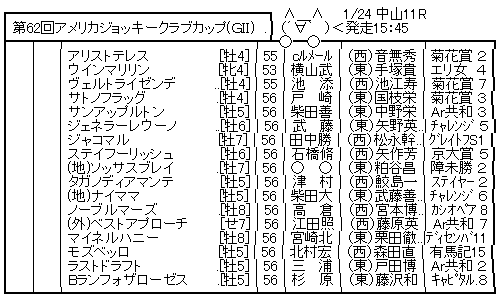 第62回アメリカジョッキークラブカップ(GII) . ( ´∀`)＜発走15:45
1/24 中山11R
アリストテレス [牡4] 55 Cルメール (西)音無秀 菊花賞 2
ウインマリリン [牝4] 53 横山武 (東)手塚貴 エリ女 4
ヴェルトライゼンデ ..[牡4] 55 池 添 (西)池江寿 菊花賞 7
サトノフラッグ [牡4] 56 戸 崎 (東)国枝栄 菊花賞 3
サンアップルトン [牡5] 56 柴田善 (東)中野栄 Ar共和 3
ジェネラーレウーノ ..[牡6] 56 武 藤 (東)矢野英.. チャレンジ 5
ジャコマル [牡7] 56 田中勝 (西)松永幹.. グレイトフS1
ステイフーリッシュ ..[牡6] 56 石橋脩 (西)矢作芳 京大賞 5
(地)ソッサスブレイ [牡7] 56 ○ ○ (東)粕谷昌 障未勝 2
タガノディアマンテ ..[牡5] 56 津 村 (西)鮫島一 ステイヤー 2
(地)ナイママ [牡5] 56 柴田大 (東)武藤善.. チャレンジ 6
ノーブルマーズ [牡8] 56 高 倉 (西)宮本博.. カシオペア8
(外)ベストアプローチ [せ7] 56 江田照 (西)藤原英 Ar共和 7
マイネルハニー [牡8] 56 宮崎北 (東)栗田徹.. ディセンバ11
モズベッロ [牡5] 56 北村宏 (西)森田直 有馬記15
ラストドラフト [牡5] 56 三 浦 (東)戸田博 Ar共和 2
Bランフォザローゼス ..[牡5] 56 杉 原 (東)藤沢和 キャピタル.8